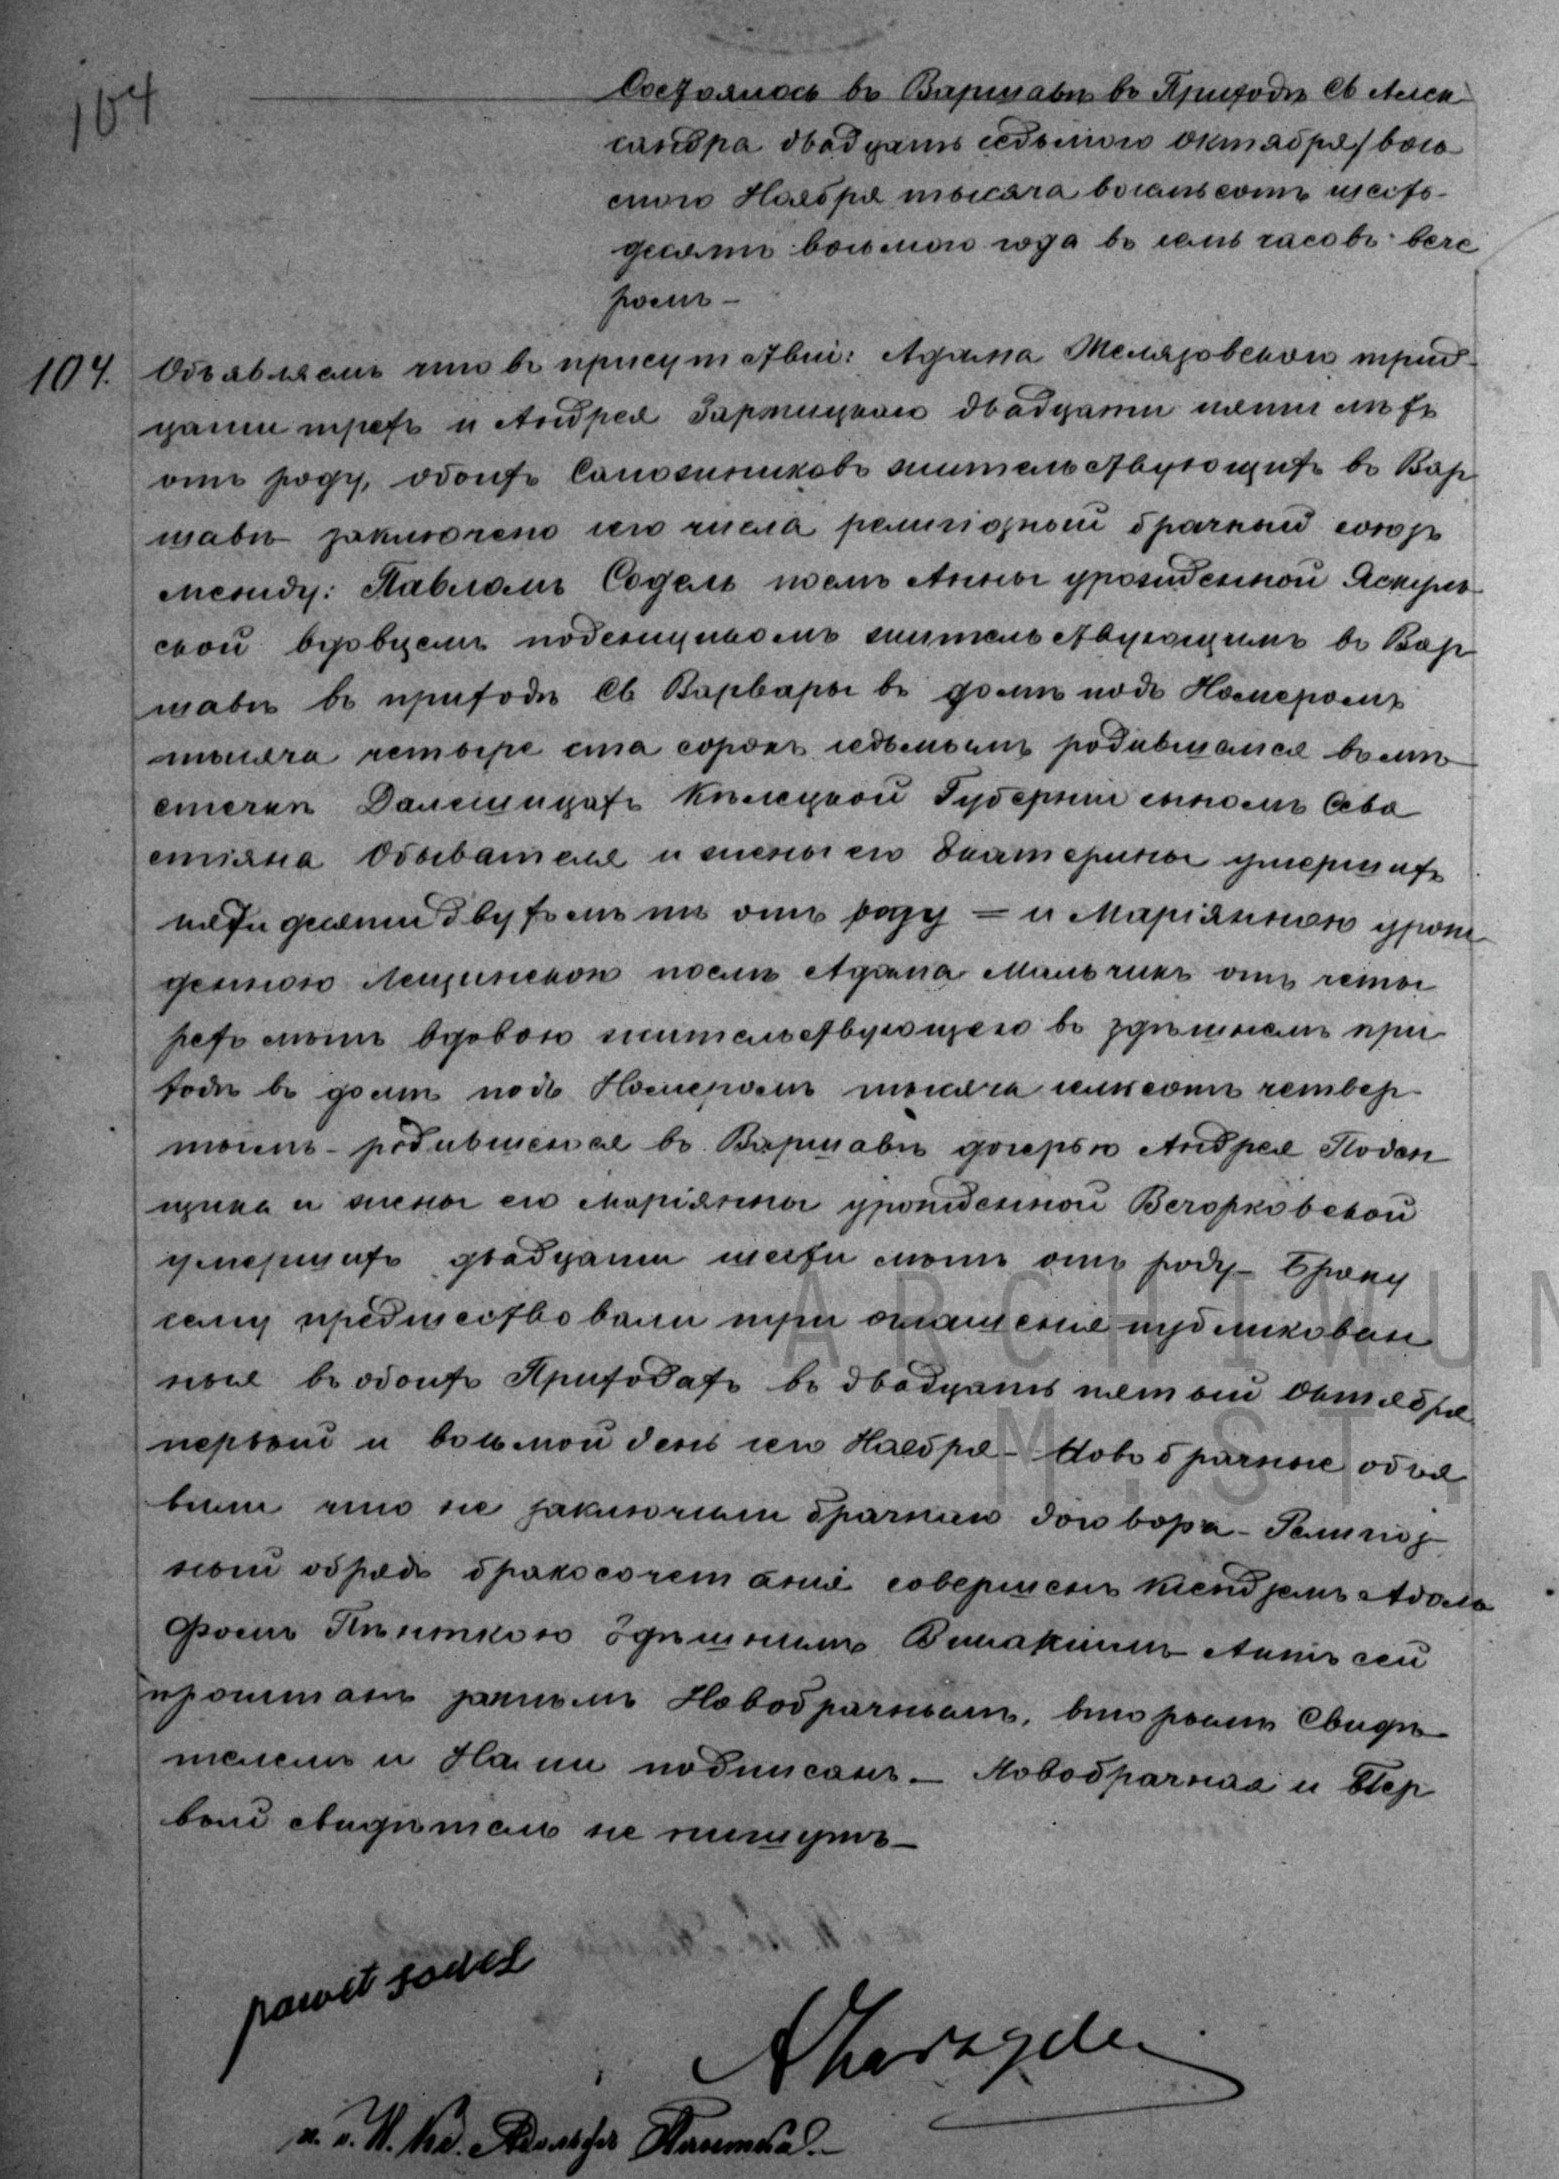 104
Состоялось въ Варшавѣ въ Приходѣ Св Алек
сандра двадцать седьмого октября/вось
смого Ноября тысяча восемьсотъ шесть-
десятъ восьмого года въ семь часовъ вече
ромъ –
104. Объявляемъ что въ присутствіи: Адама Желязовскаго трид-
цати трехъ и Андрея двадцати пяти лѣтъ
отъ роду, обоихъ Сапожниковъ жительствующихъ въ Вар
шавѣ заключено сего числа религіозный брачный союзъ
между: Павломъ Содель послѣ Анны урожденной Яскуль-
ской вдовцемъ поденщикомъ жительствующимъ въ Вар
шавѣ въ приходѣ Св Варвары въ домѣ подъ Номеромъ
тысяча четыре ста сорокъ седьмымъ родившемся въ мѣ
стечкѣ Далешицахъ Кѣлецкой Губерніи сыномъ Сева
стіяна Обывателя и жены его Екатерины умершихъ
пяти десяти двухъ лѣтъ отъ роду = и Маріянною урож
денною Лещинскою послѣ Адама Мальчикъ отъ четы
рехъ лѣтъ вдовою жительствующею въ здѣшнемъ при
ходѣ въ домѣ подъ Номеромъ тысяча семьсотъ четвер-
тымъ – родившеюся въ Варшавѣ дочерью Андрея Поден
щика и жены его Маріянны урожденной Вечорковской
умершихъ двадцати шести лѣтъ отъ роду – Браку
сему предшествовали три оглашенія публикован
ные въ обоихъ Приходахъ въ двадцать пятый Октября
первый и восьмой день сего Ноября – Новобрачные объя
вили что не заключили брачнаго договора – Религіоз
ный обрядъ бракосочетанія совершенъ Ксендземъ Адоль
фомъ Пѣнткою здѣшнимъ Викаріимъ Актъ сей
прочитанъ Новобрачнымъ, вторымъ Свидѣ
телемъ и Нами подписанъ. – Новобрачная и Пер
вый свидѣтель не пишутъ –
paweł sodel
и. д. Н. Кс. Адольфъ Пѣнтка. –
ARCHIWUM
M. ST.